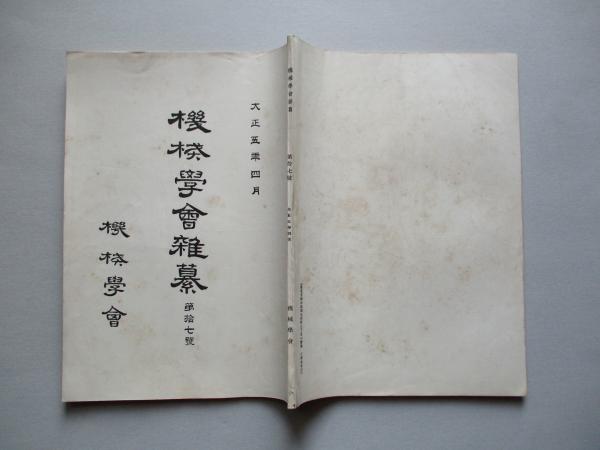 大正五年四月
機械學會雜纂
第拾七號
機械學會
機械學會雜纂
第拾七號
機械學會